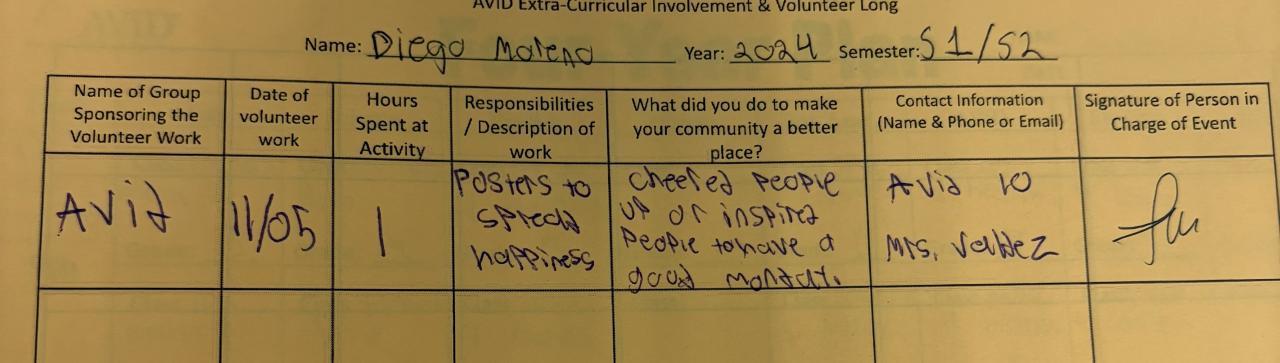 AVID Extra-Curricular Involvement & Volunteer Long
Name: Diego Moreno Year: 2024 Semester: S1/S2
Name of Group
Sponsoring the
Volunteer Work
Date of
volunteer
work
Hours
Spent at
Activity
Responsibilities
/ Description of
work
What did you do to make
your community a better
place?
Contact Information
(Name & Phone or Email)
Signature of Person in
Charge of Event
Avid
11/05
1
Posters to
spread
happiness
cheered people
up or inspired
people to have a
good
Avid 10
Mrs. Valdez